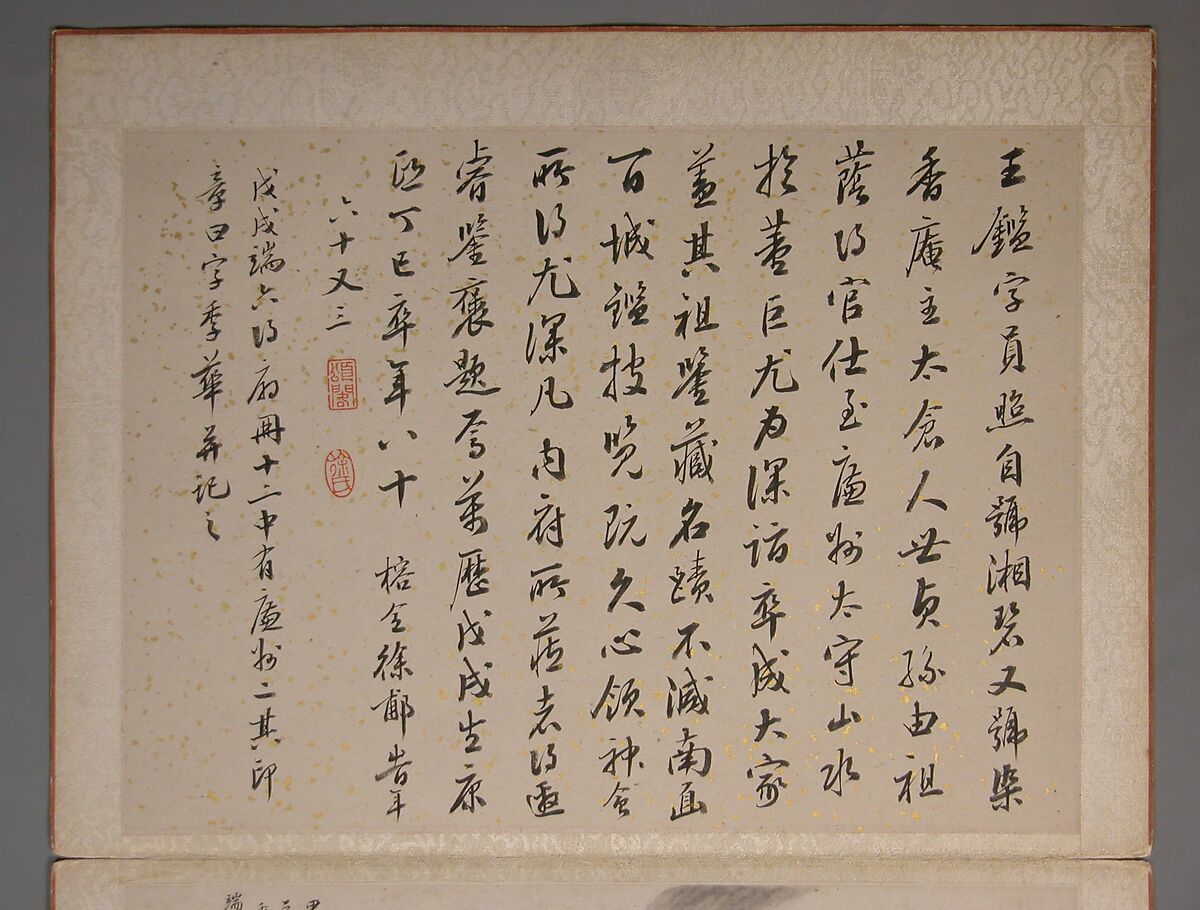 王鑑字員照自號湘碧又號染
香庵主太倉人世貞孫由祖
蔭得官仕至廉州太守山水
於董巨尤為深詣卒成大家
蓋其祖鑒藏名蹟不減南面
百城鑑披覽既久心領神會
所得尤深凡內府所藏者得邀
睿鑒褒題焉萬曆戊戌生康
熙丁巳卒年八十 榕全徐郙 時年
六十又三
頌閣
徐氏
戊戌端六得扇冊十二中有廉州二其印
章曰字季華并記之
端